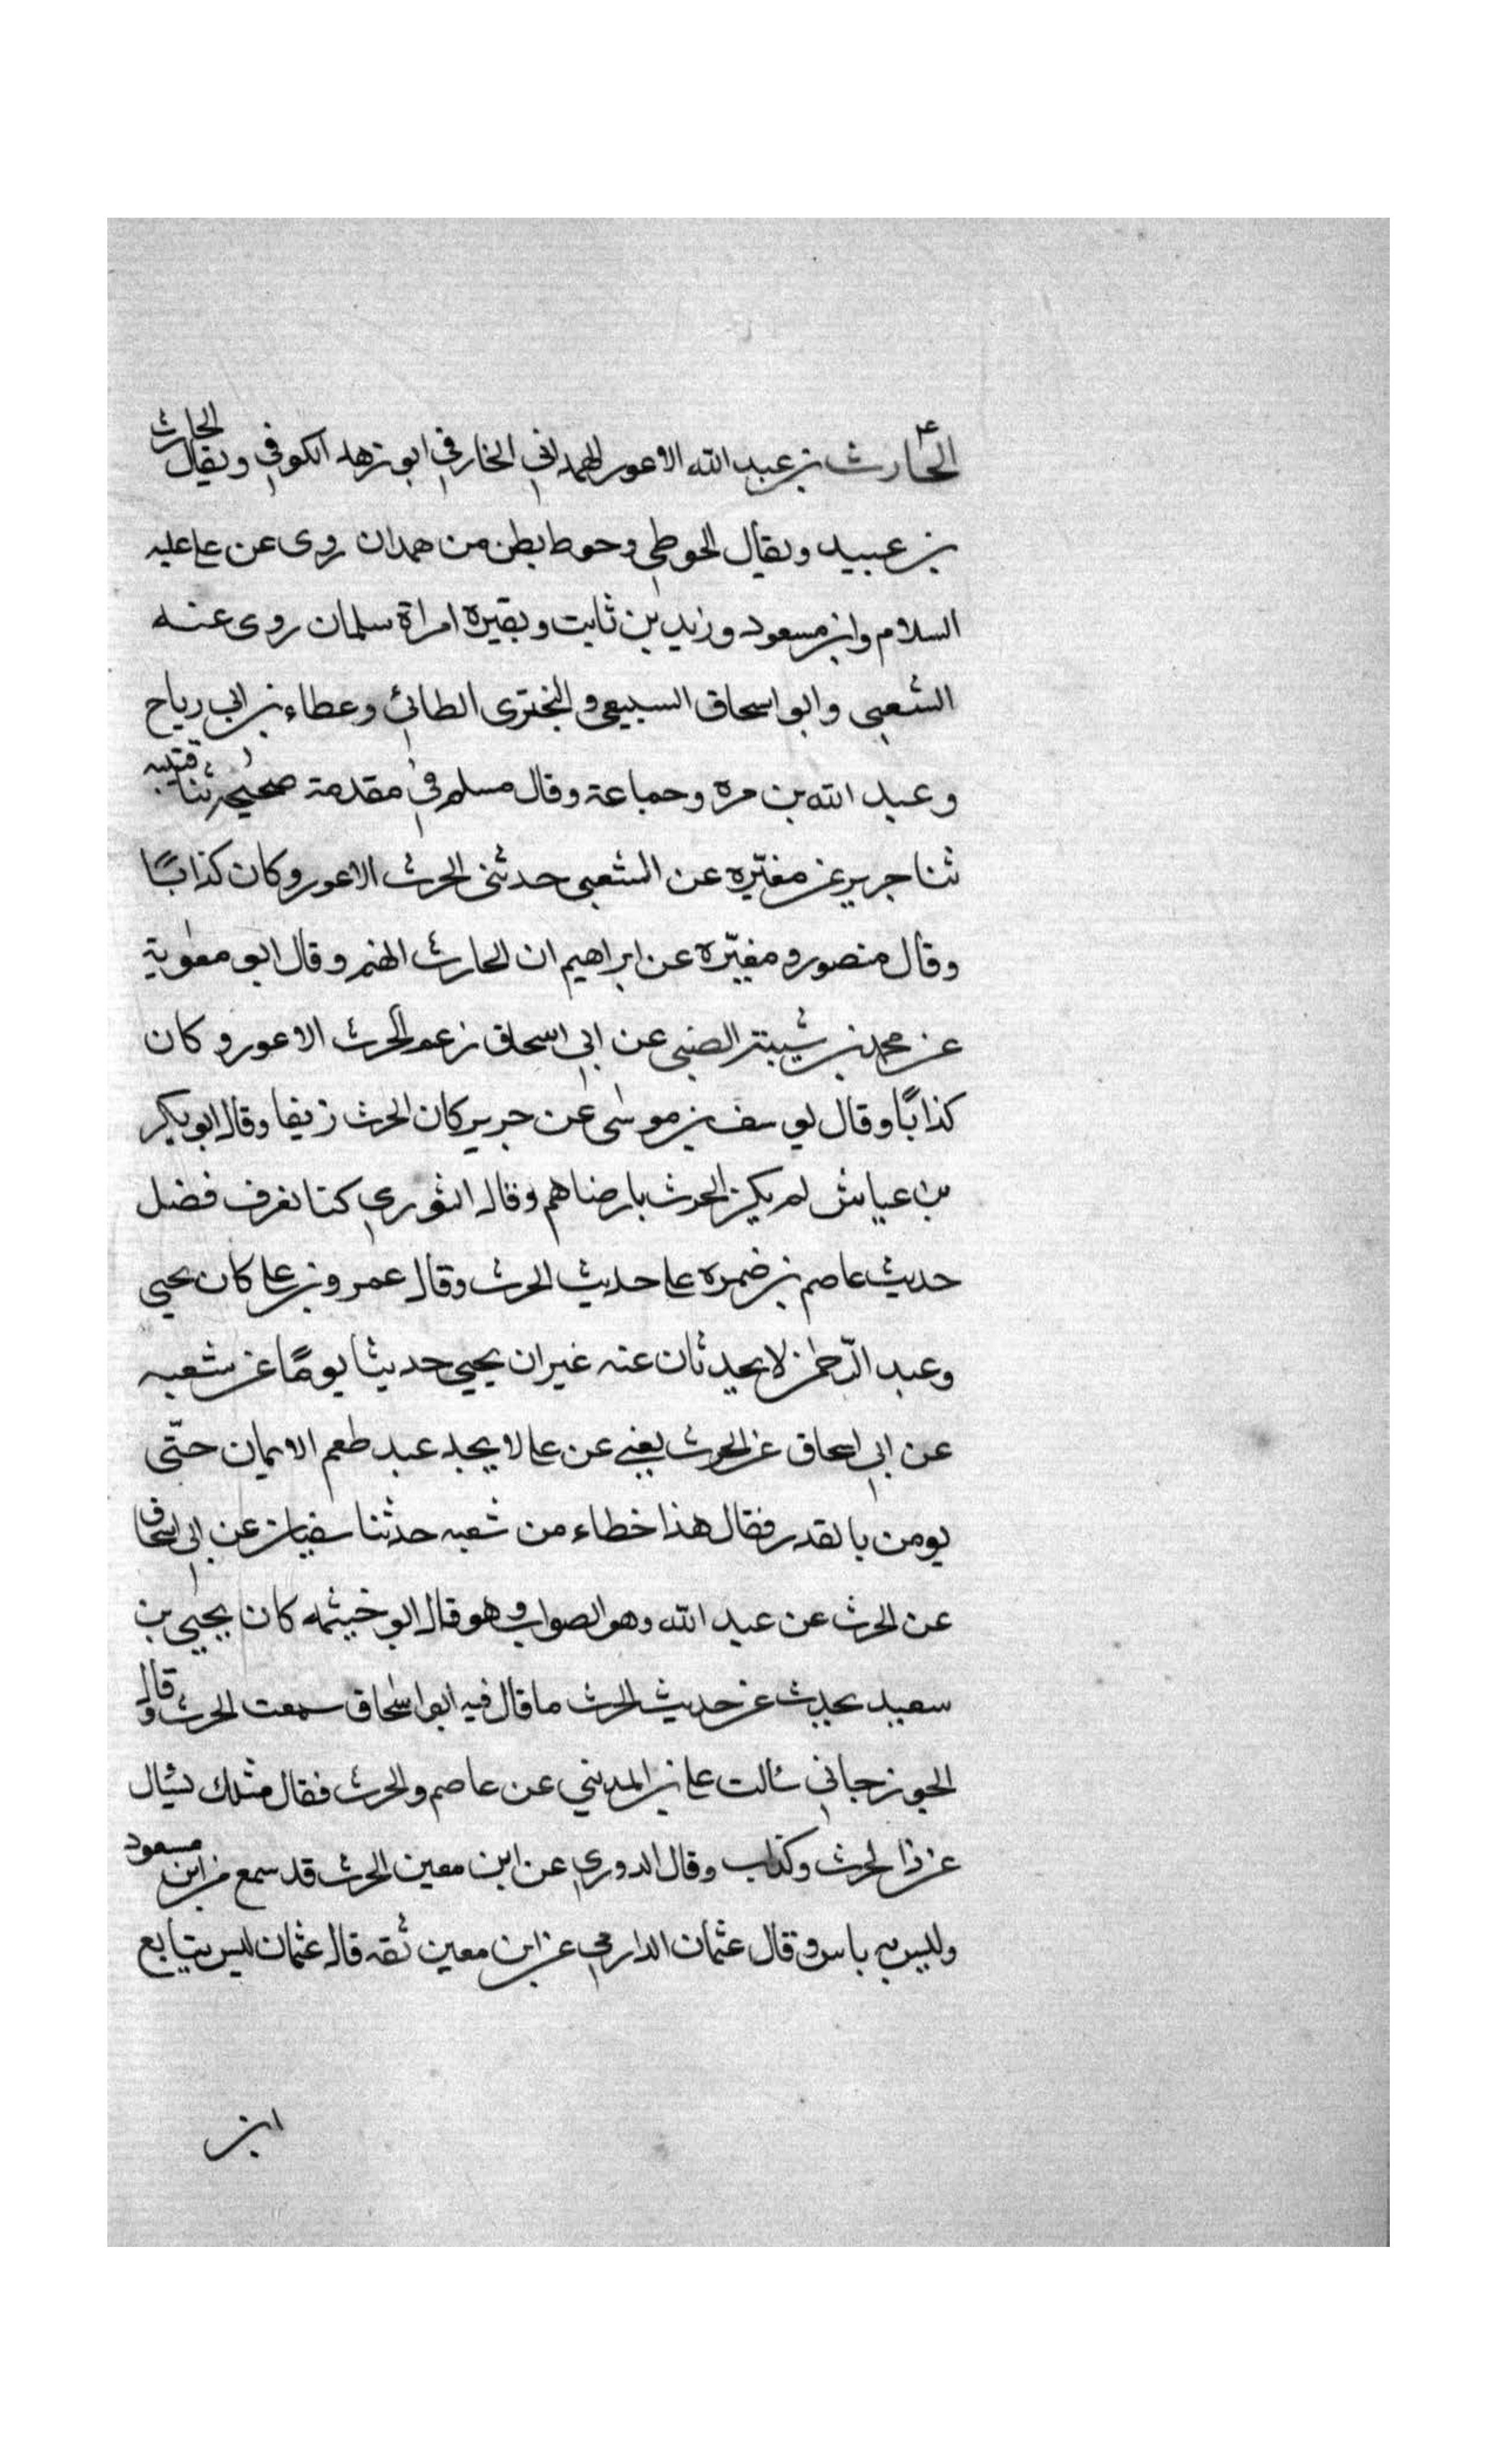 الحارث بن عبد الله الاعور الهمداني الخارفي ابو زهير الكوفي ويقال الحارث
بن عبيد ويقال الحوطي وحوط بطن من همدان روى عن علي عليه
السلام وابن مسعود وزيد بن ثابت وبقيرة امراة سلمان روى عنه
الشعبي وابو اسحاق السبيعي و البختري الطائي وعطاء بن ابي رياح
وعبد الله بن مره وجماعة وقال مسلم في مقدمة صحيحه ثنا قتيبه
ثنا جرير عن مغيّره عن الشعبي حدثني الحرث الاعور وكان كذابًا
وقال منصور و مغيّره عن ابراهيم ان الحارث اتهم وقال ابو معوية
عن محمد بن شيبة الضبي عن ابي اسحاق زعم الحرث الاعور وكان
كذابًا وقال يوسف بن موسى عن جرير كان الحرث زيفا وقال ابو بكر
بن عياش لم يكن الحرث بارضاهم وقال الثوري كنا نعرف فضل
حديث عاصم بن ضمره على حديث الحرث وقال عمرو بن علي كان يحيى
وعبد الرّحمن لا يحدثان عنه غير ان يحيى حديثا يومًا عن شعبه
عن ابي اسحاق عن الحرث يعني عن علي لا يجد عبد طعم الايمان حتّى
يومن بالقدر فقال هذا خطاء من شعبه حدثنا سفيان عن ابي اسحاق
عن الحرث عن عبد الله وهو الصواب و هو قال ابو خيثمه كان يحيى بن
سعيد يحدث عن حديث الحرث ما قال فيه ابو اسحاق سمعت الحرث وقال
الجوزجاني سالت علي بن المديني عن عاصم والحرث فقال مثلك يسال
عن ذا الحرث وكذاب وقال الدوري عن ابن معين الحرث قد سمع من ابن مسعود
وليس به باس و قال عثمان الدارمي عن ابن معين ثقه قال عثمان ليس يتابع
ابن